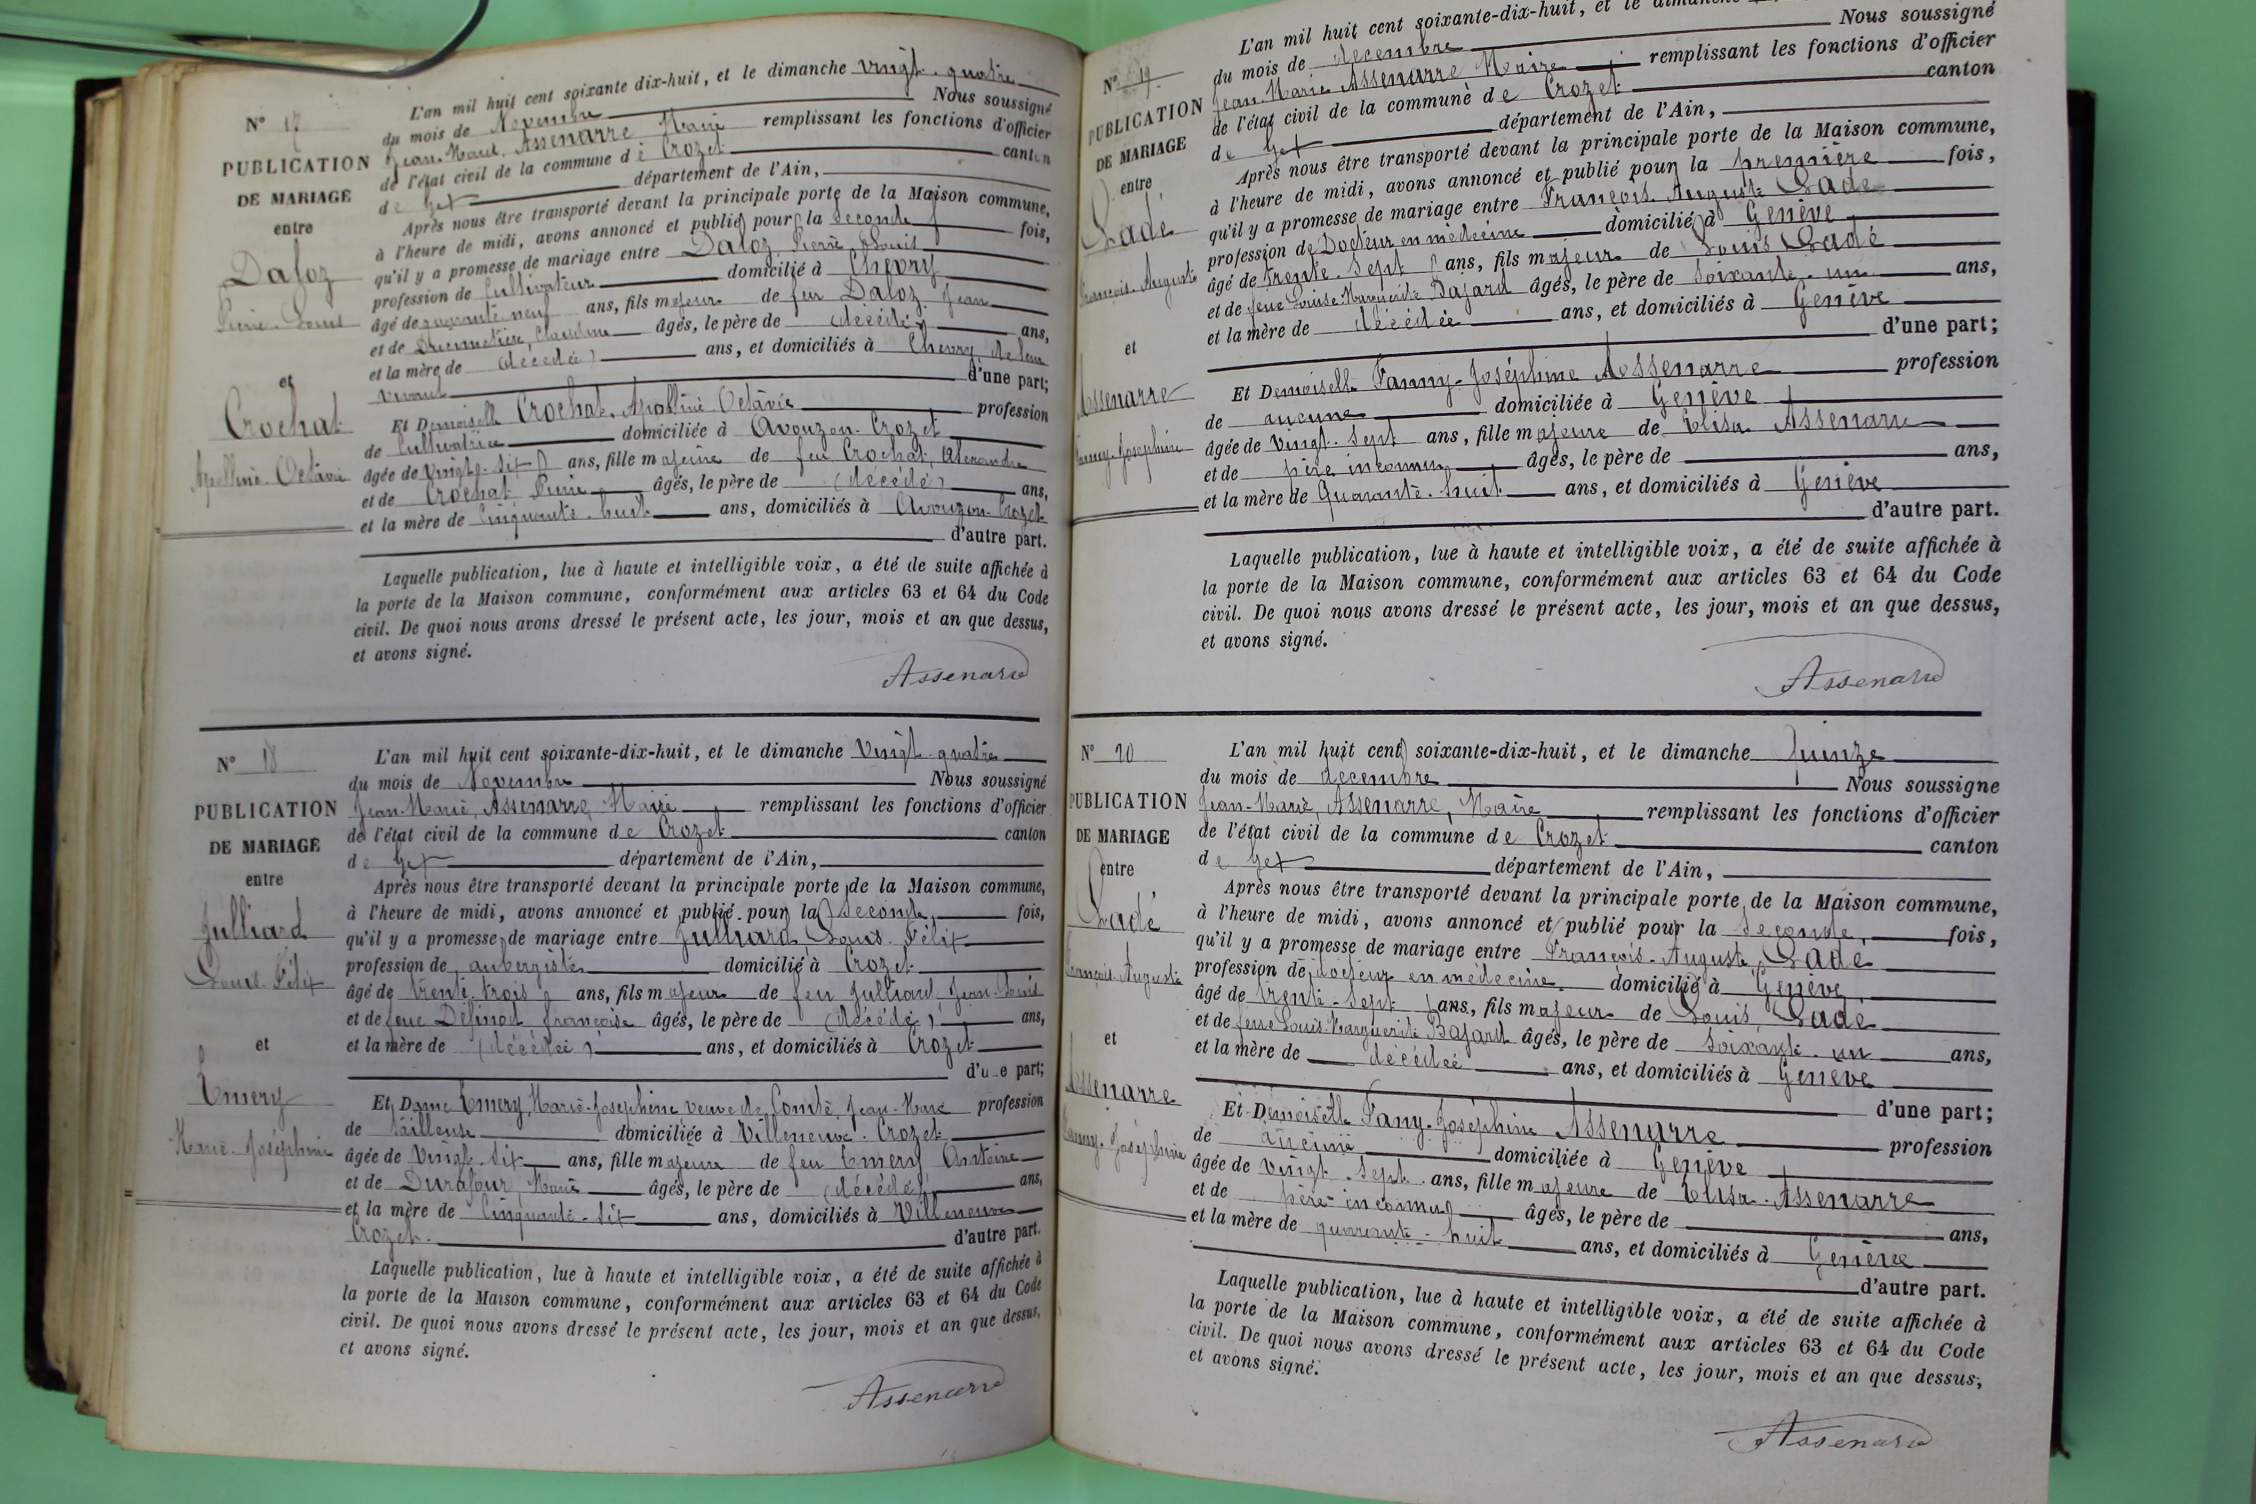 N° 17
PUBLICATION
DE MARIAGE
entre
Daloz
Pierre Louis
et
Crochat
Apolline Octavie
L'an mil huit cent soixante dix-huit, et le dimanche vingt-quatre
du mois de Novembre Nous soussigné
Jean-Marie Assenarre Maire remplissant les fonctions d'officier
de l'état civil de la commune de Crozet canton
de Gex département de l'Ain,
Après nous être transporté devant la principale porte de la Maison commune,
à l'heure de midi, avons annoncé et publié pour la seconde fois,
qu'il y a promesse de mariage entre Daloz Pierre Louis
profession de Cultivateur domicilié à Chevry
âgé de neuf ans, fils majeur de feu Daloz Jean
et de Ducimetière, Claudine âgés, le père de (décédé) ans,
et la mère de (décédée) ans, et domiciliés à Chevry de leur
vivant d'une part;
Et Demoiselle Crochat Apolline Octavie profession
de Cultivatrice domiciliée à Avouzon-Crozet
âgée de vingt-six ans, fille majeure de feu Crochat, Alexandre
et de Crochat âgés, le père de (décédé) ans,
et la mère de Cinquante-huit ans, domiciliés à Avouzon-Crozet
d'autre part.
Laquelle publication, lue à haute et intelligible voix, a été de suite affichée à
la porte de la Maison commune, conformément aux articles 63 et 64 du Code
civil. De quoi nous avons dressé le présent acte, les jour, mois et an que dessus,
et avons signé.
Assenarre
N° 18
PUBLICATION
DE MARIAGE
entre
Julliard
Louis Félix
et
Emery
Marie-Joséphine
L'an mil huit cent soixante-dix-huit, et le dimanche Vingt-quatre
du mois de Novembre Nous soussigné
Jean-Marie, Assenarre, Maire remplissant les fonctions d'officier
de l'état civil de la commune de Crozet canton
de Gex département de l'Ain,
Après nous être transporté devant la principale porte de la Maison commune,
à l'heure de midi, avons annoncé et publié pour la seconde, fois,
qu'il y a promesse de mariage entre Julliard, Louis Félix
profession de aubergiste domicilié à Crozet
âgé de trente-trois ans, fils majeur de feu Julliard Jean-Louis
et de feue Françoise âgés, le père de (décédé) ans,
et la mère de (décédée) ans, et domiciliés à Crozet
d'une part;
Et Dame Emery, Marie-Josephine veuve de Comte, Jean-Marie profession
de tailleuse domiciliée à Villeneuve-Crozet
âgée de Vingt-six ans, fille majeure de feu Emery Antoine
et de Durafour, Marie âgés, le père de (décédé) ans,
et la mère de Cinquante-six ans, domiciliés à Villeneuve
Crozet. d'autre part.
Laquelle publication, lue à haute et intelligible voix, a été de suite affichée à
la porte de la Maison commune, conformément aux articles 63 et 64 du Code
civil. De quoi nous avons dressé le présent acte, les jour, mois et an que dessus,
et avons signé.
Assenarre
N° 19
PUBLICATION
DE MARIAGE
entre
Ladé
François-Auguste
et
Assenarre
Fanny-Joséphine
L'an mil huit cent soixante-dix-huit, et le dimanche
du mois de décembre Nous soussigné
Jean-Marie Assenarre Maire remplissant les fonctions d'officier
de l'état civil de la commune de Crozet canton
de Gex département de l'Ain,
Après nous être transporté devant la principale porte de la Maison commune,
à l'heure de midi, avons annoncé et publié pour la première fois,
qu'il y a promesse de mariage entre François-Auguste Ladé
profession de Docteur en médecine domicilié à Genève
âgé de trente-sept ans, fils majeur de Louis Ladé
et de feue Louise Marguerite Bajard âgés, le père de soixante-un ans,
et la mère de décédée ans, et domiciliés à Genève
d'une part;
Et Demoiselle Fanny-Joséphine Assenarre profession
de aucune domiciliée à Genève
âgée de vingt-sept ans, fille majeure de Elisa Assenarre
et de père inconnu âgés, le père de ans,
et la mère de Quarante-huit ans, et domiciliés à Genève
d'autre part.
Laquelle publication, lue à haute et intelligible voix, a été de suite affichée à
la porte de la Maison commune, conformément aux articles 63 et 64 du Code
civil. De quoi nous avons dressé le présent acte, les jour, mois et an que dessus,
et avons signé.
Assenarre
N° 20
PUBLICATION
DE MARIAGE
entre
Ladé
François-Auguste
et
Assenarre
Fanny-Joséphine
L'an mil huit cent soixante-dix-huit, et le dimanche quinze
du mois de décembre Nous soussigné
Jean-Marie, Assenarre, Maire remplissant les fonctions d'officier
de l'état civil de la commune de Crozet canton
de Gex département de l'Ain,
Après nous être transporté devant la principale porte de la Maison commune,
à l'heure de midi, avons annoncé et publié pour la seconde, fois,
qu'il y a promesse de mariage entre François-Auguste, Ladé
profession de docteur en médecine. domicilié à Genève
âgé de trente-sept ans, fils majeur de Louis, Ladé
et de feue Louis Marguerite Bajard âgés, le père de soixante-un ans,
et la mère de décédée ans, et domiciliés à Genève
d'une part;
Et Demoiselle Fany-Joséphine Assenarre profession
de aucune domiciliée à Genève
âgée de vingt-sept ans, fille majeure de Elisa Assenarre
et de père inconnu âgés, le père de ans,
et la mère de quarante-huit ans, et domiciliés à Genève
d'autre part.
Laquelle publication, lue à haute et intelligible voix, a été de suite affichée à
la porte de la Maison commune, conformément aux articles 63 et 64 du Code
civil. De quoi nous avons dressé le présent acte, les jour, mois et an que dessus,
et avons signé.
Assenarre